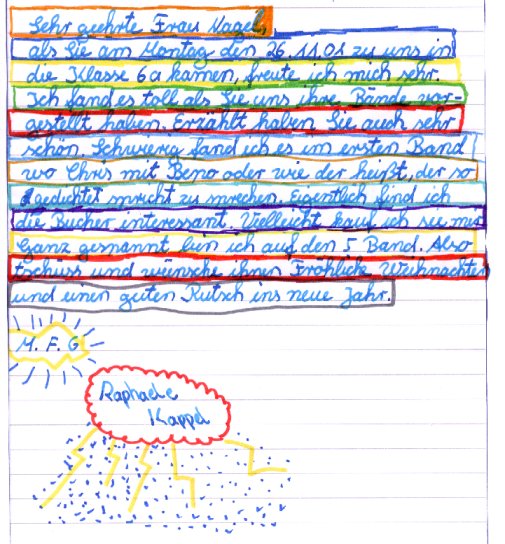 Sehr geehrte Frau Nagel,
als Sie am Montag den 26.11.01 zu uns in
die Klasse 6a kamen, freute ich mich sehr.
Ich fand es toll als Sie uns ihre Bände vor-
gestellt haben. Erzählt haben Sie auch sehr
schön. Schwierig fand ich es im ersten Band
wo Chris mit Beno oder wie der heißt, der so
gedichtet spricht zu sprechen. Eigentlich find ich
die Bücher interessant. Vielleicht kauf ich sie mir
Ganz gespannt bin ich auf den 5 Band. Also
tschüss und wünsche ihnen Fröhliche Weihnachten
und einen guten Rutsch ins neue Jahr.
M. F. G
Raphaele
Kappel